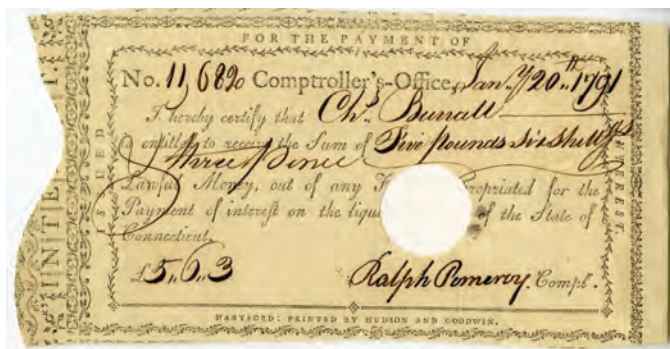 FOR THE PAYMENT OF
No. 11,682 Comptroller's-Office, Jan.y 20th 1791
I hereby certify that Chs. Burrall
is entitled to receive the Sum of Five pounds six shillgs
& three pence
Lawful Money, out of any propriated for the
Payment of interest on the liqu of the State of
Connecticut.
£5,,6,,3 Ralph Pomeroy. Compt.
HARTFORD: PRINTED BY HUDSON AND GOODWIN.
ISSUED
INTEREST.